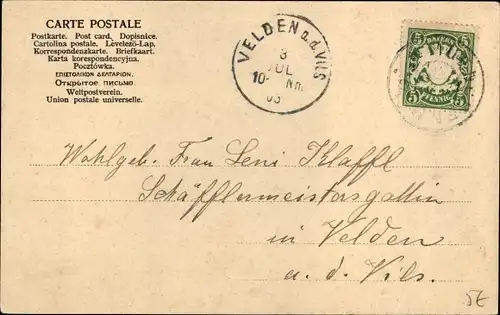 CARTE POSTALE
Postkarte. Post card. Dopisnice.
Cartolina postale. Levelező-Lap.
Korrespondenzkarte. Briefkaart.
Karta korespondencyjna.
Pocztówka.
ΕΠΙΣΤΟΛΙΚΟΝ ΔΕΛΤΑΡΙΟΝ.
Открытое письмо.
Weltpostverein.
Union postale universelle.
VELDEN a.d. VILS
8
JUL
10- Nm.
03
BAYERN
5 5
PFENNIG
5 5
Wohlgeb. Frau Leni Klaffl
Schäfflermeistersgattin
in Velden
a. d. Vils.
5£